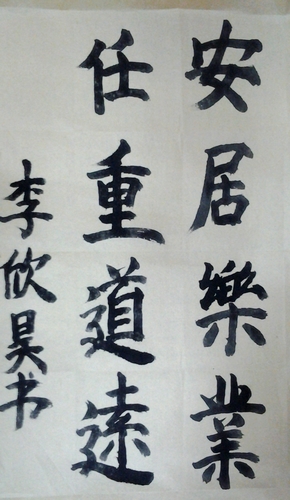 安居樂業
任重道遠
李欣昊书